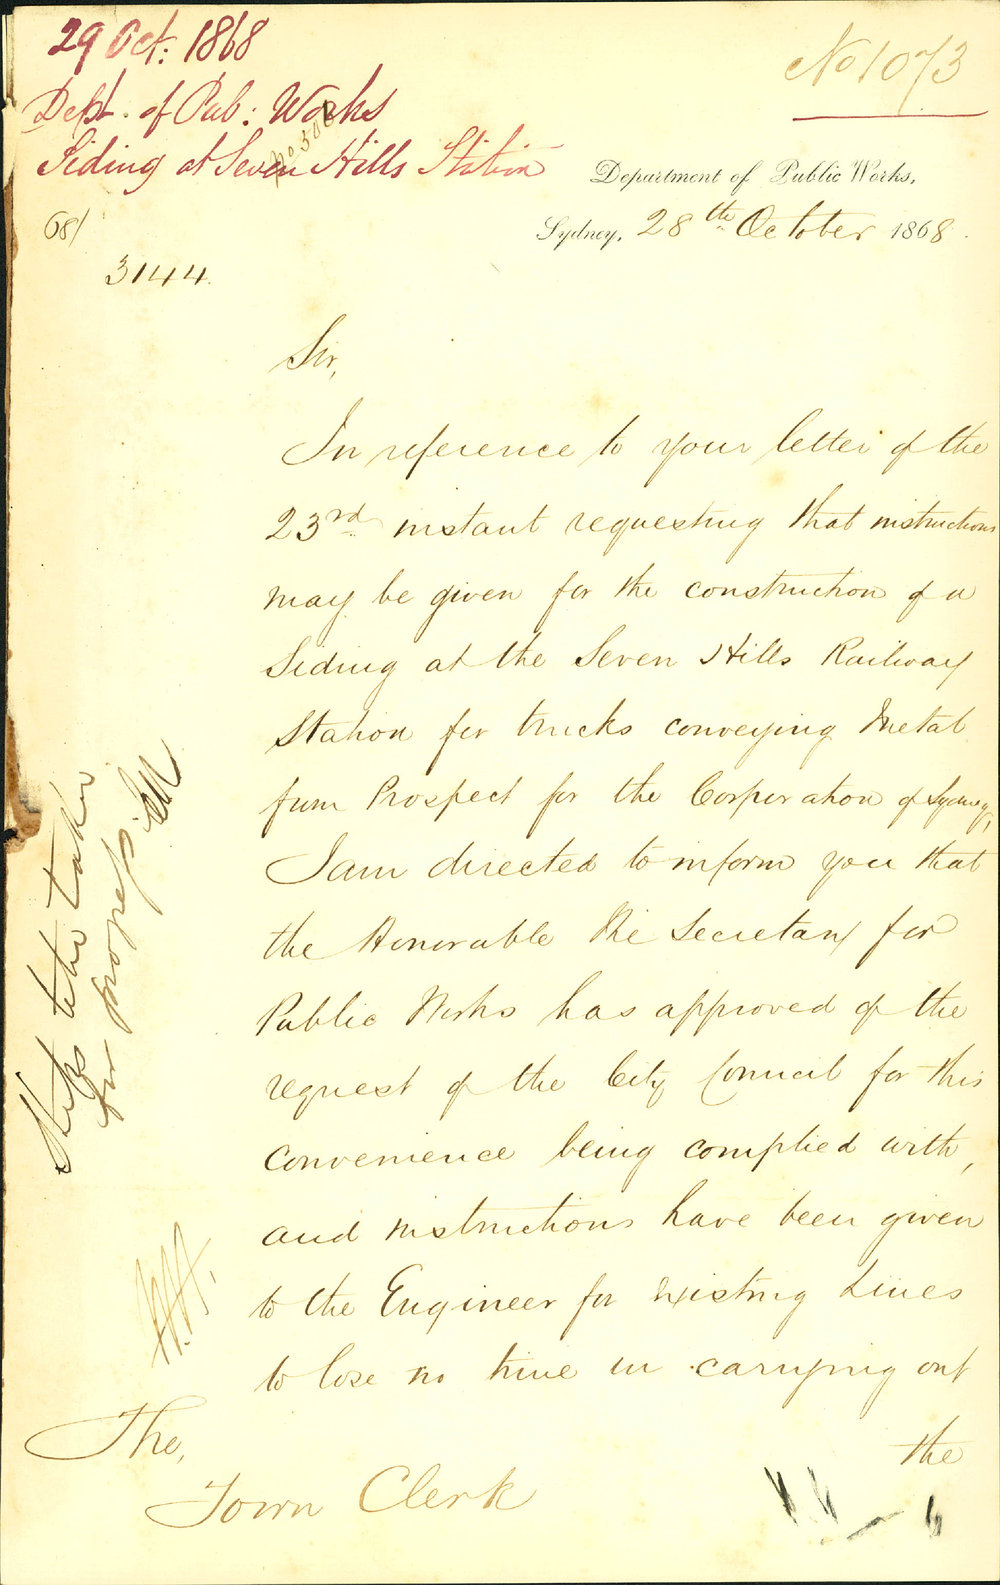 29 Oct: 1868
No 1073
Dept. of Pub: Works
Siding at Seven Hills Station
Department of Public Works,
68/
Sydney, 28th October 1868.
3144.
Sir,
In reference to your letter of the
23rd instant requesting that instructions
may be given for the construction of a
Siding at the Seven Hills Railway
Station for trucks conveying Metal
from Prospect for the Corporation of Sydney,
I am directed to inform you that
the Honorable the Secretary for
Public Works has approved of the
request of the City Council for this
convenience being complied with,
and instructions have been given
to the Engineer for Existing Lines
to lose no time in carrying out
the
The,
Town Clerk
Steps to be taken
for